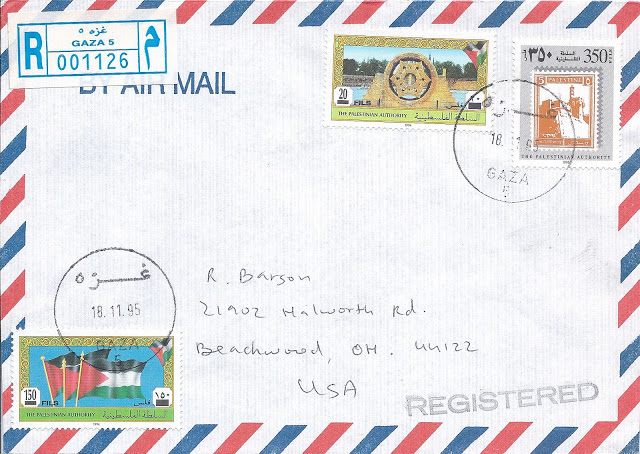 غزه ٥
R GAZA 5 م
001126
BY AIR MAIL
20 FILS فلس
THE PALESTINIAN AUTHORITY السلطة الفلسطينية
٣٥٠ السلطة الفلسطينية 350 FILS
5 PALESTINE
THE PALESTINIAN AUTHORITY
غزه
GAZA
5
غزه
18.11.95
5
R. Barson
21902 Halworth Rd.
Beachwood, OH. 44122
USA
REGISTERED
150 FILS فلس ١٥٠
THE PALESTINIAN AUTHORITY السلطة الفلسطينية